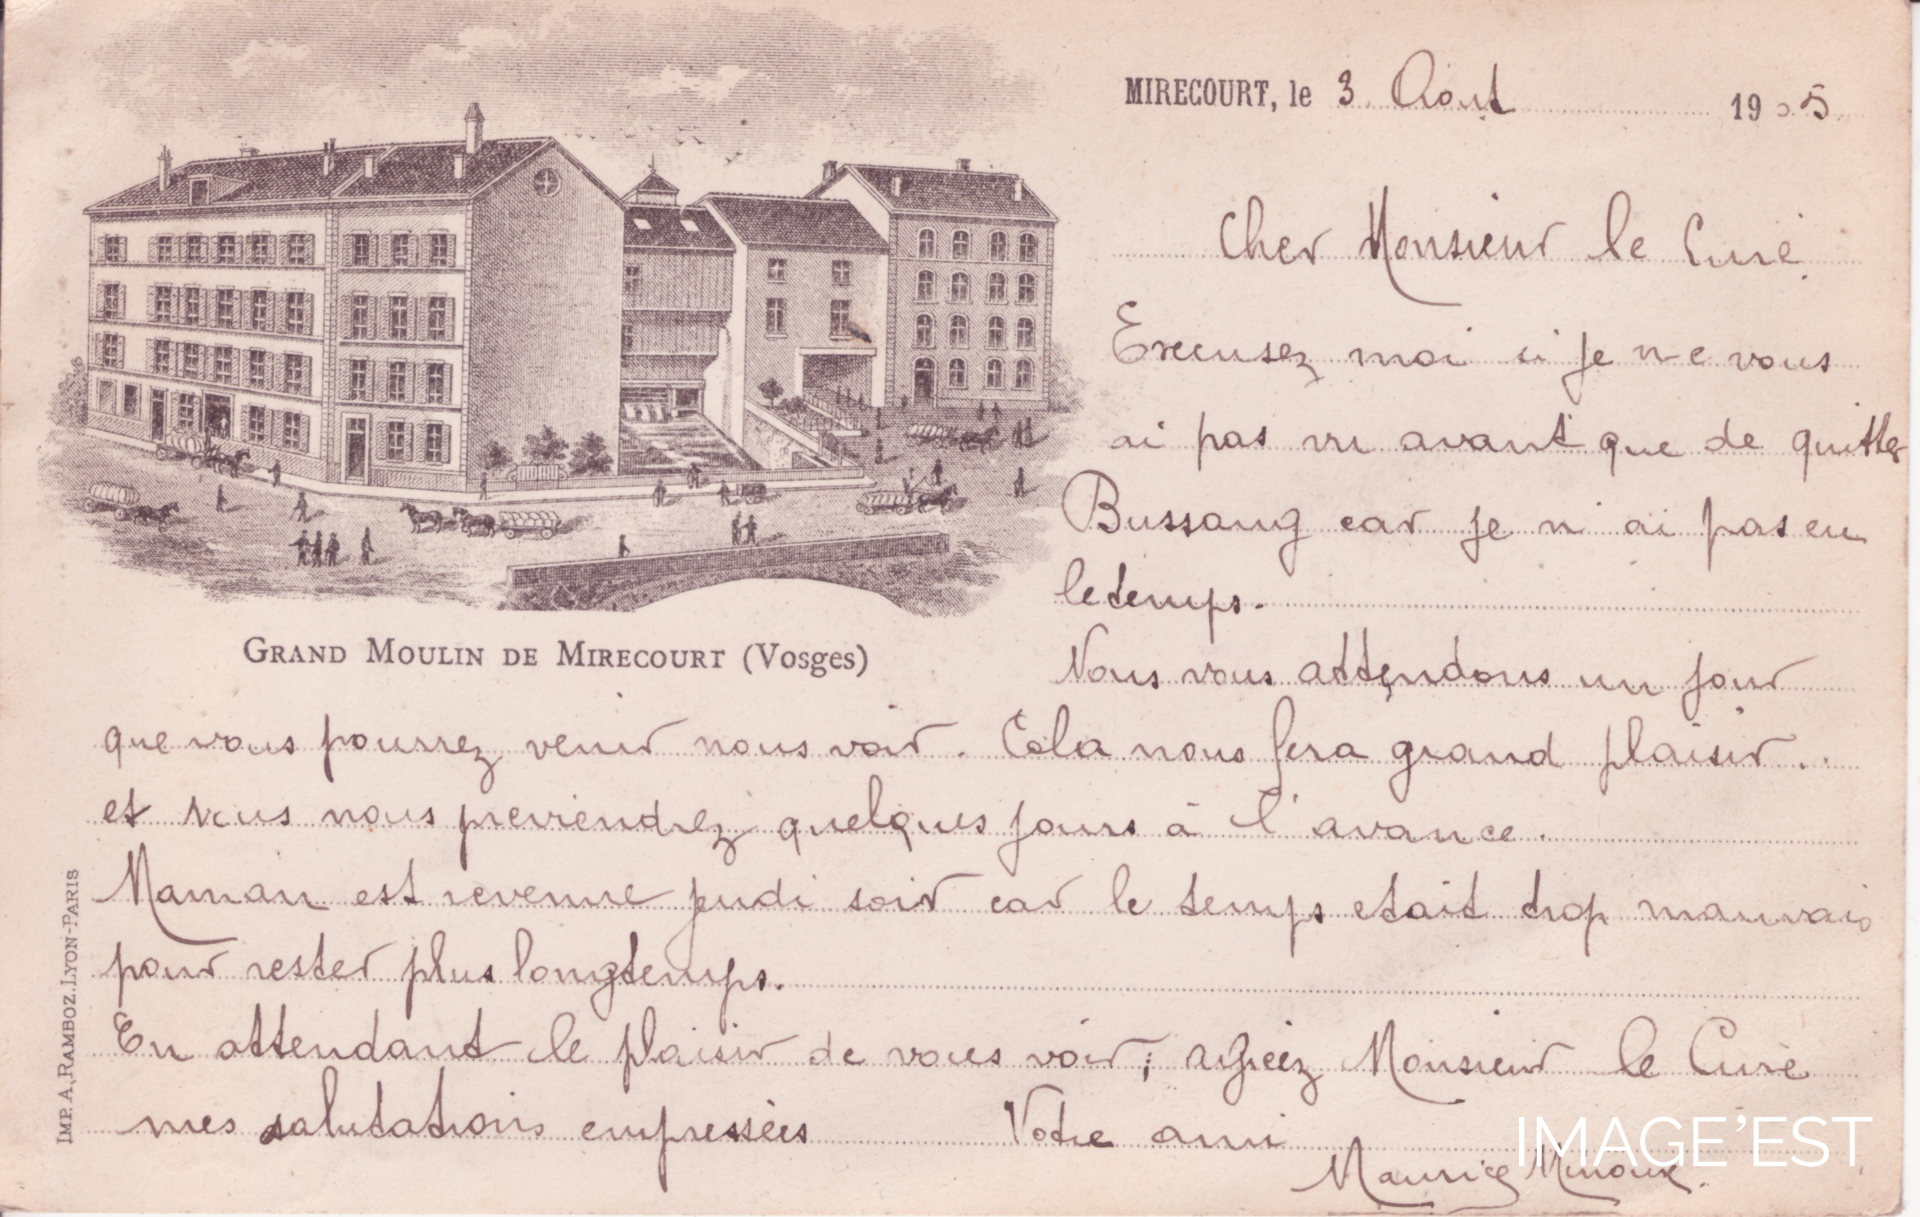 MIRECOURT, le 3 Août 1905
Cher Monsieur le Curé
Excusez moi si je ne vous
ai pas vu avant que de quitter
Bussang car je n'ai pas eu
le temps.
GRAND MOULIN DE MIRECOURT (Vosges)
Nous vous attendons un jour
que vous pourrez venir nous voir. Cela nous fera grand plaisir..
et vous nous previendrez quelques jours à l'avance.
Maman est revenue jeudi soir car le temps etait trop mauvais
pour rester plus longtemps.
En attendant le plaisir de vous voir; agréez Monsieur le Curé
mes salutations empressées Votre ami
Maurice
IMP. A. RAMBOZ. LYON-PARIS
IMAGE'EST